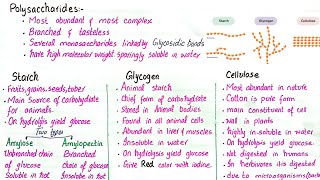 Polysaccharides:-
• Most abundant & most complex
• Branched & tasteless
• Several monosaccharides linked by Glycosidic bonds
• have high molecular weight sparingly soluble in water
Starch
Glycogen
Cellulose
Starch
• Fruits, grains, seeds, tuber
• Main Source of carbohydrate
for animals.
• On hydrolysis yield glucose
Two types
Amylose
Unbranched
chain of
glucose
Soluble in hot
Amylopectin
Branched
chain of
glucose
Insoluble in hot
Glycogen
• Animal starch
• Chief form of carbohydrate
• Stored in Animal bodies
• Found in all animal cells
• Abundant in liver & muscles
• Insoluble in water
• On hydrolysis yield glucose
• Give Red color with iodine.
Cellulose
• Most abundant in nature
• Cotton is pure form
• main constituent of cell
wall in plants
• highly in-soluble in water
• On hydrolysis yield glucose
• Not digested in humans
• In herbivores its digested
due to microorganisms